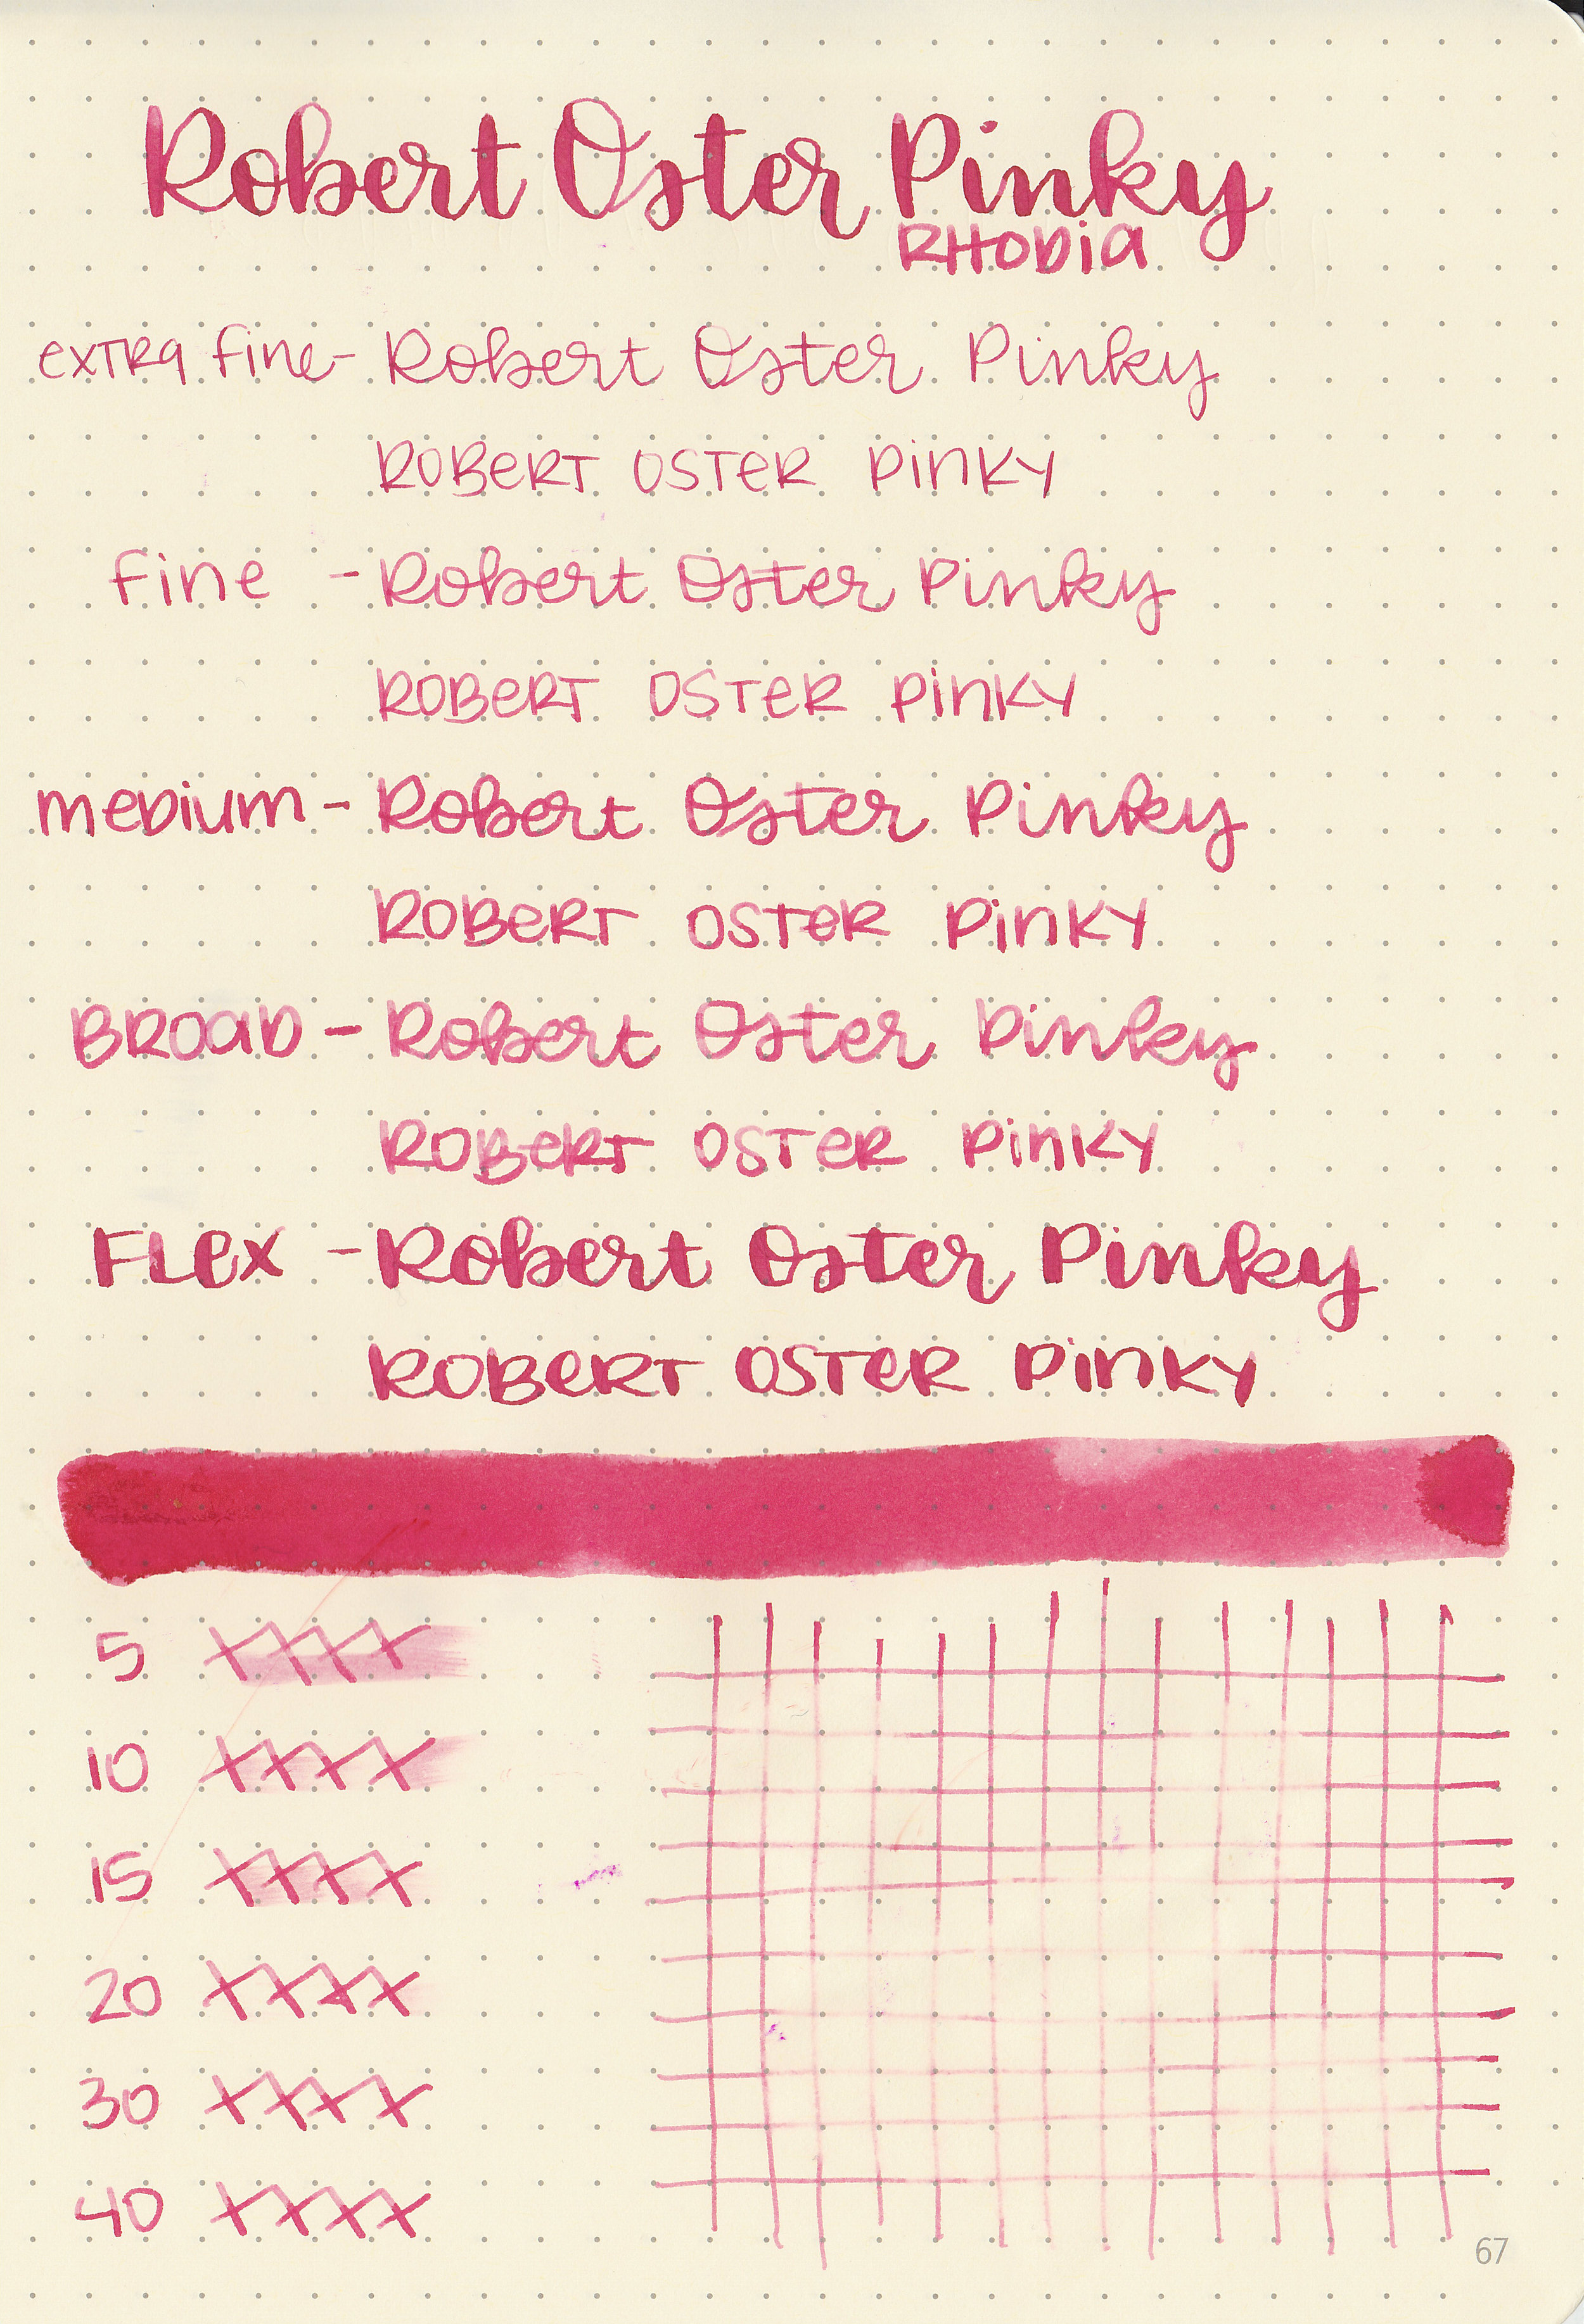 Robert Oster Pinky
RHODia
exTRa fine - Robert Oster Pinky
ROBeRT OSTeR PinKY
fine - Robert Oster Pinky
ROBeRT OSTeR PinKY
meDium - Robert Oster Pinky
ROBeRT OSTeR PinKY
BROaD - Robert Oster Pinky
ROBeRT OSTeR PinKY
FLex - Robert Oster Pinky
ROBeRT OSTeR PinKY
5 xxxx
10 xxxx
15 xxxx
20 xxxx
30 xxxx
40 xxxx
67